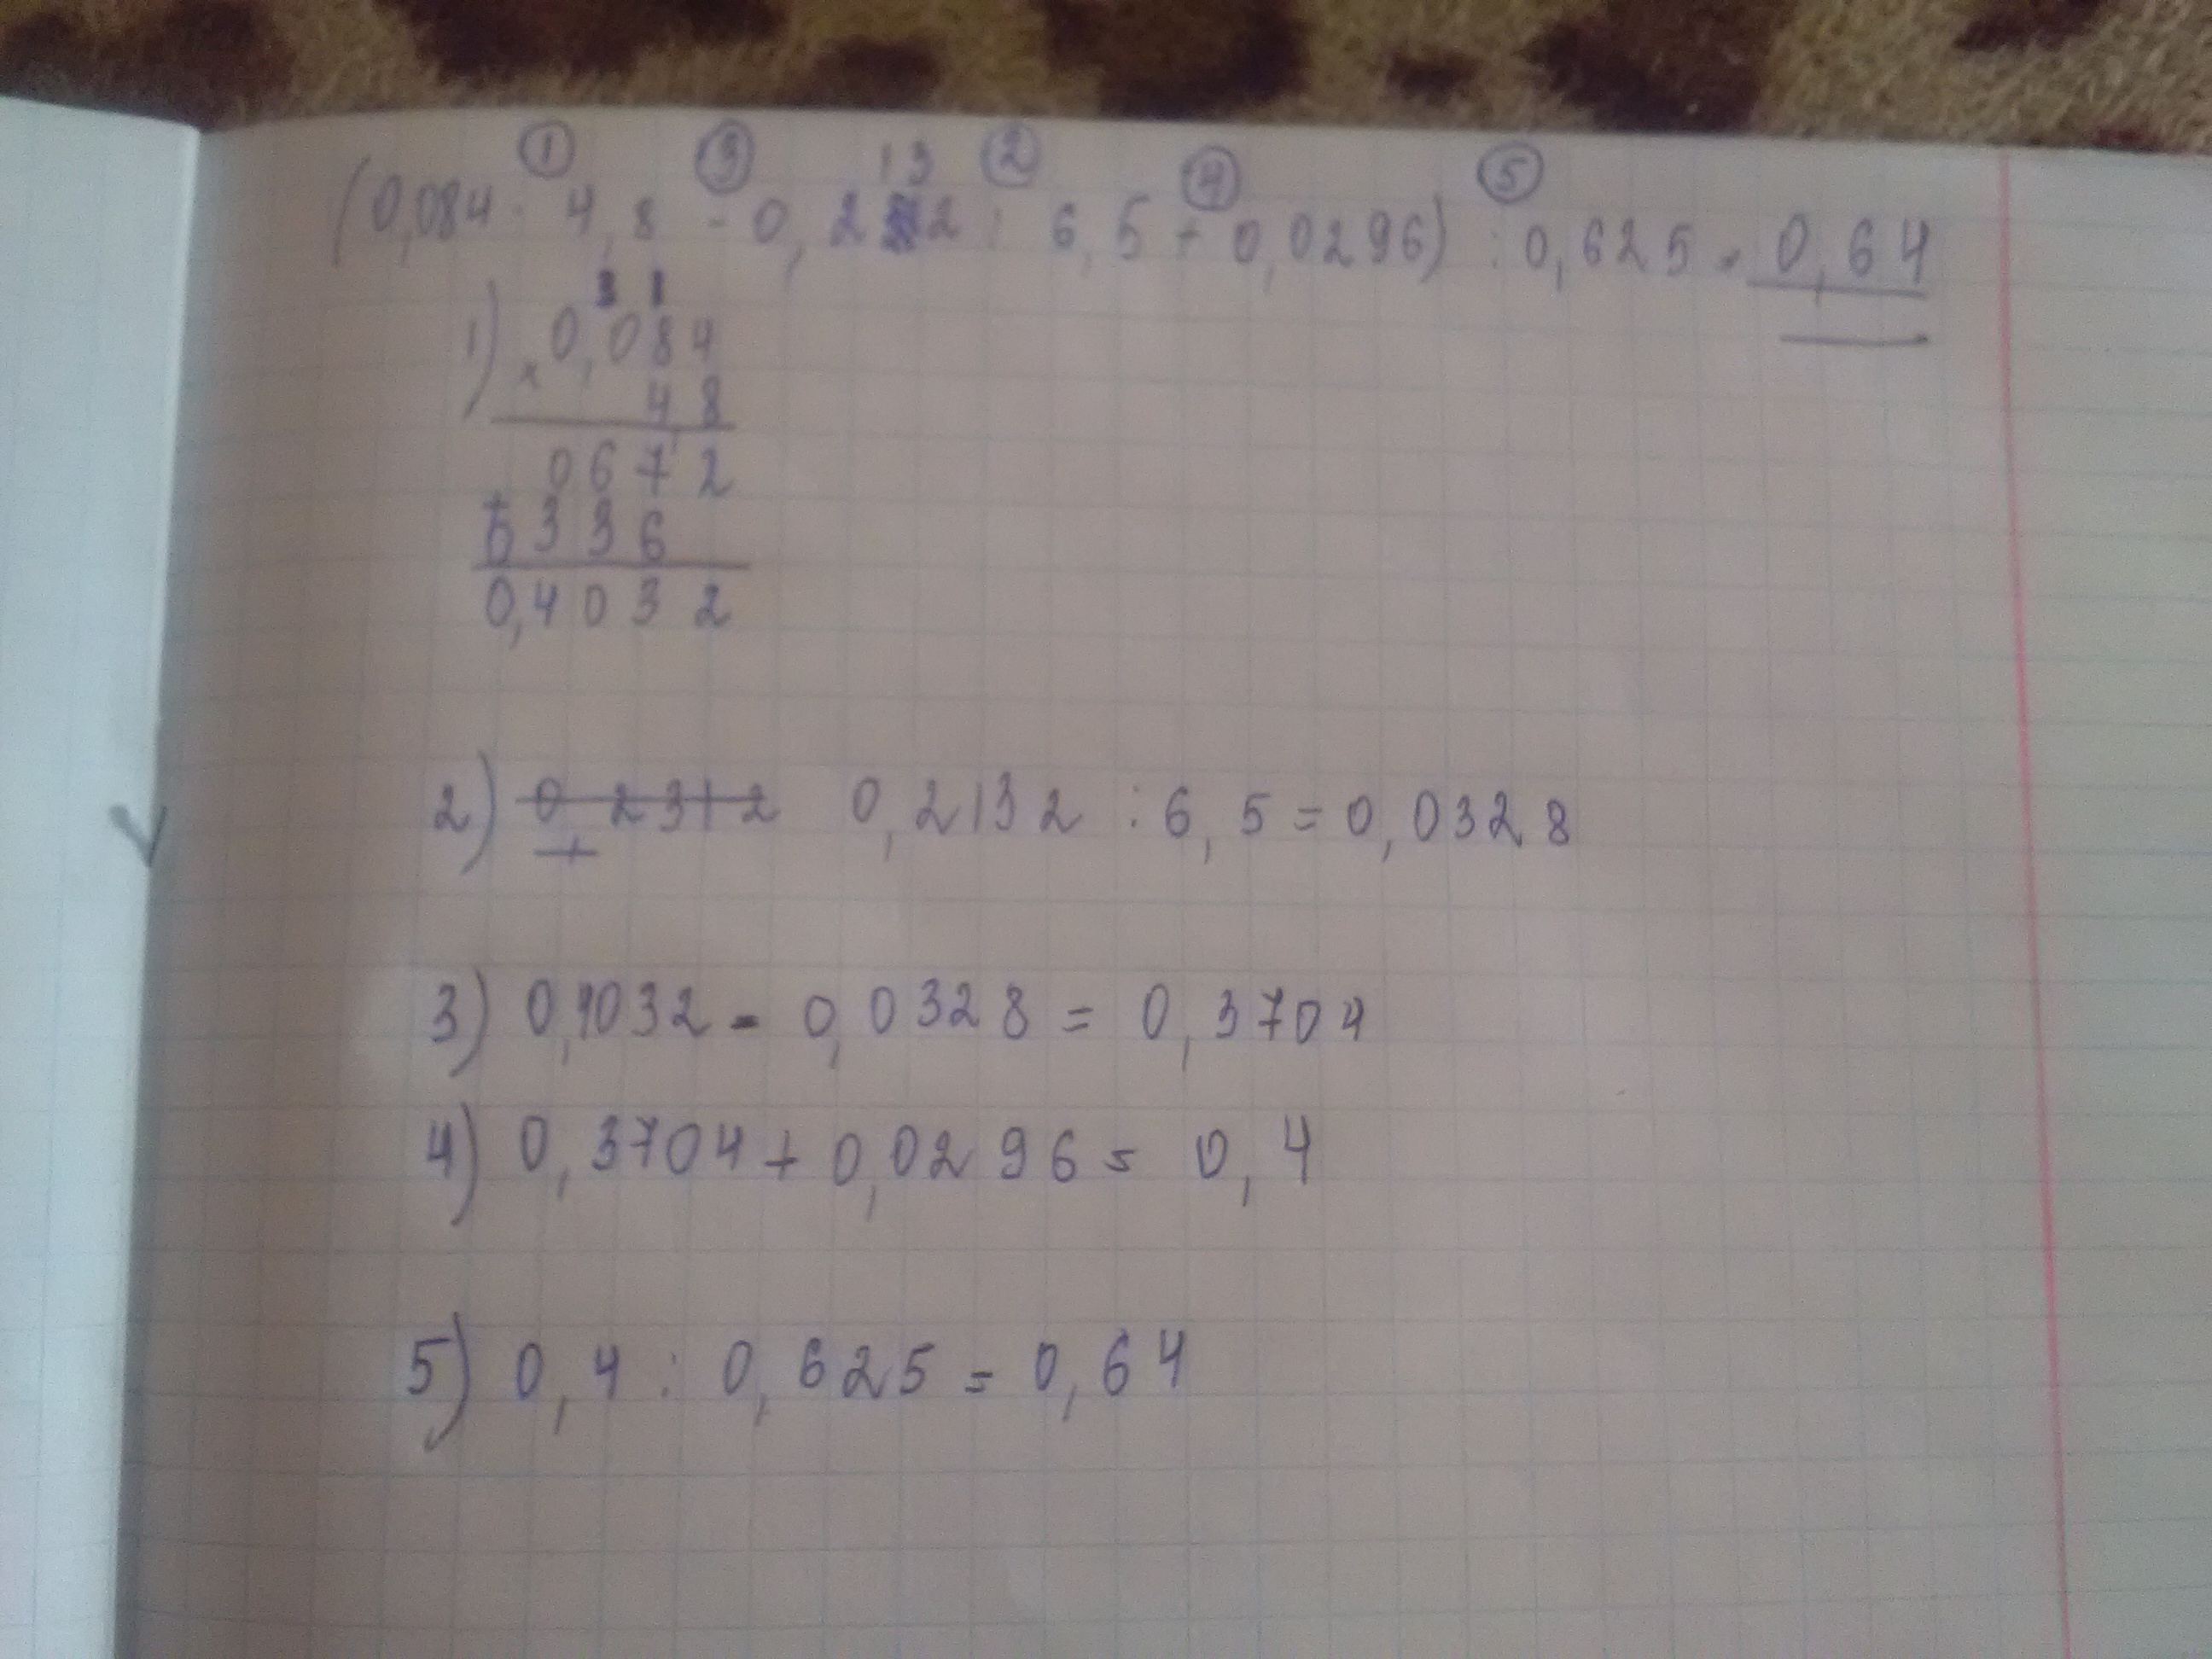 ① ③ 13 ② ④ ⑤
(0,084 · 4,8 - 0,2 2 : 6,5 + 0,0296) : 0,625 = 0,64
3 1
1) × 0,084
48
0672
+ 0336
0,4032
2) 0,2312 0,2132 : 6,5 = 0,0328
3) 0,4032 - 0,0328 = 0,3704
4) 0,3704 + 0,0296 = 0,4
5) 0,4 : 0,625 = 0,64